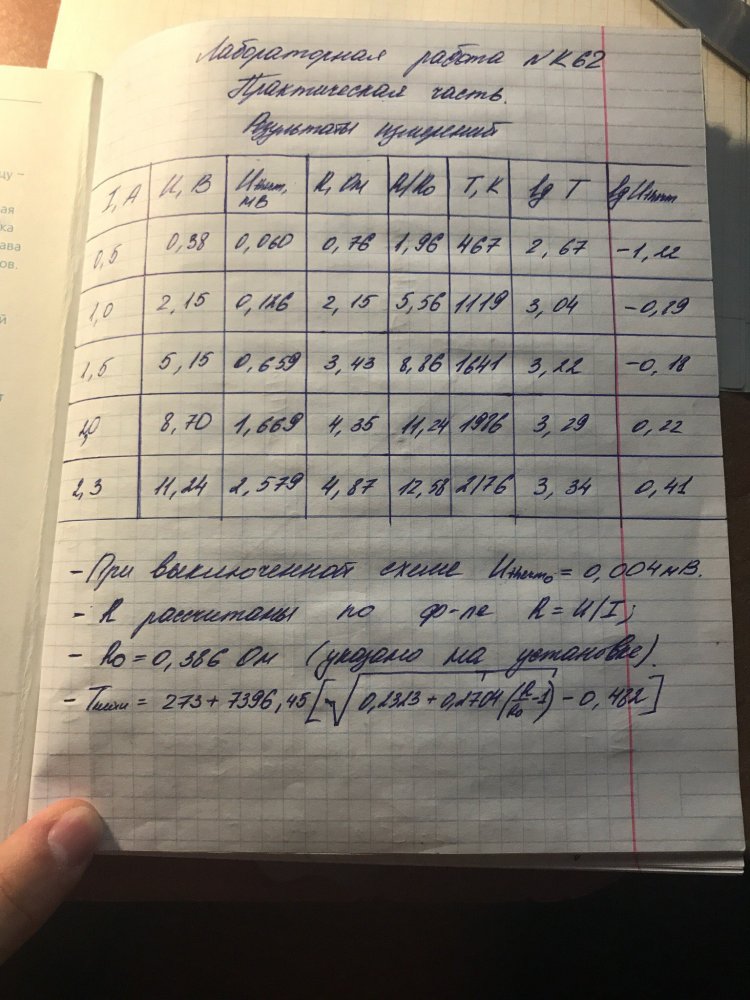 Лабораторная работа №К62
Практическая часть.
Результаты измерений
I, А U, В Uterm, мВ R, Ом R/R0 T, К lg T lg Uterm
0,5 0,38 0,060 0,76 1,96 467 2,67 -1,22
1,0 2,15 0,126 2,15 5,56 1119 3,04 -0,89
1,5 5,15 0,659 3,43 8,86 1641 3,22 -0,18
2,0 8,70 1,669 4,35 11,24 1986 3,29 0,22
2,3 11,24 2,579 4,87 12,58 2176 3,34 0,41
- При выключенной схеме Uterm0 = 0,004мВ.
- R рассчитаны по ф-ле R = U/I;
- R0 = 0,386 Ом (указано на установке).
= 273 + 7396,45[√0,2323 + 0,2704(R/R0 - 1) - 0,482]
цу –
ная
ка
ава
ов.
й
т